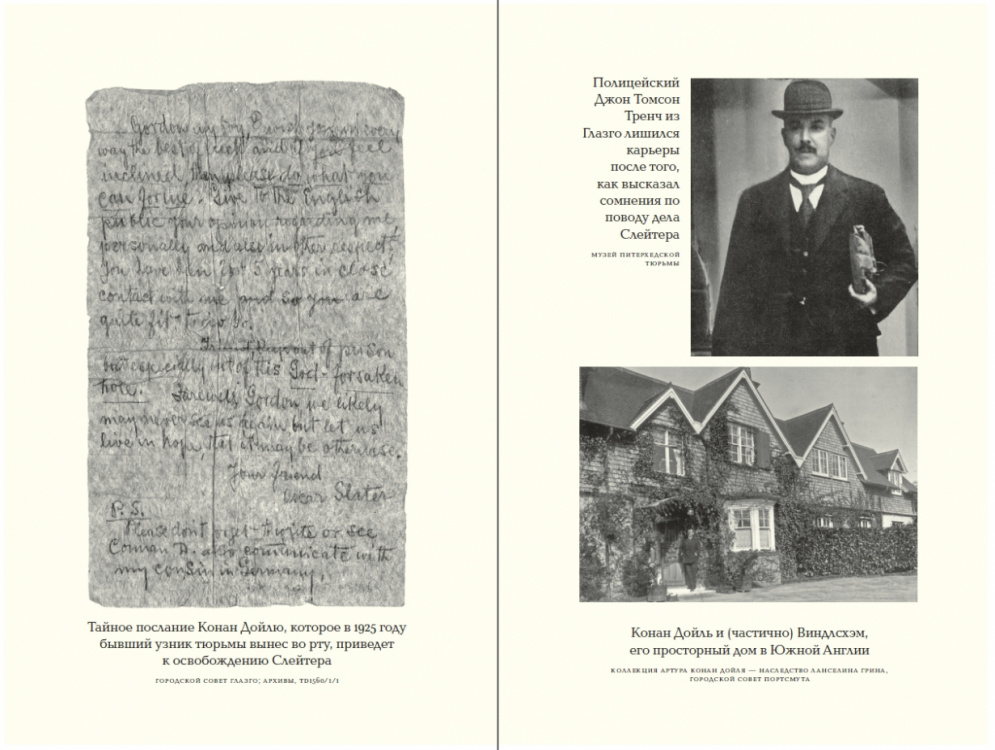 Gordon my boy, I wish you in every
way the best of luck and if you feel
inclined, then please do what you
can for me. Give to the English
public your opinion regarding me,
personally and also in other respects.
You have been for 5 years in close
contact with me and so you are
quite fit to do so.
Friend keep out of prison
but especially out of this God-forsaken
hole. Farewell Gordon we likely
may never see us again but let us
live in hope, that it may be otherwise.
Your friend
Oscar Slater
P. S.
Please dont forget to write or see
Connan D. also communicate with
my cousin in Germany.
Тайное послание Конан Дойлю, которое в 1925 году
бывший узник тюрьмы вынес во рту, приведет
к освобождению Слейтера
ГОРОДСКОЙ СОВЕТ ГЛАЗГО; АРХИВЫ, TD1560/1/1
Полицейский
Джон Томсон
Тренч из
Глазго лишился
карьеры
после того,
как высказал
сомнения по
поводу дела
Слейтера
МУЗЕЙ ПИТЕРХЕДСКОЙ
ТЮРЬМЫ
Конан Дойль и (частично) Виндлсхэм,
его просторный дом в Южной Англии
КОЛЛЕКЦИЯ АРТУРА КОНАН ДОЙЛЯ — НАСЛЕДСТВО ЛАНСЕЛИНА ГРИНА,
ГОРОДСКОЙ СОВЕТ ПОРТСМУТА